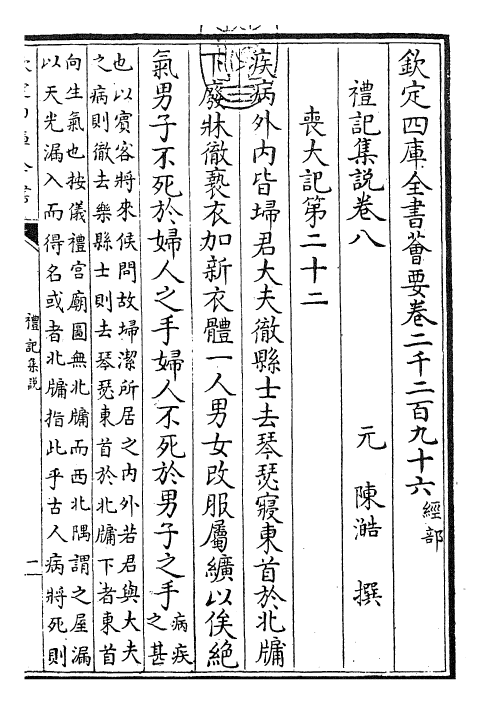 欽定四庫全書薈要卷二千二百九十六經部
禮記集說卷八
元 陳澔 撰
喪大記第二十二
疾病外内皆埽君大夫徹縣士去琴瑟寢東首於北牖
下廢牀徹褻衣加新衣體一人男女改服屬纊以俟絶
氣男子不死於婦人之手婦人不死於男子之手
病疾
之甚
也以賓客將來候問故埽潔所居之内外若君與大夫
之病則徹去樂縣士則去琴瑟東首於北牖下者東首
向生氣也按儀禮宫廟圖無北牖而西北隅謂之屋漏
以天光漏入而得名或者北牖指此乎古人病將死則
禮記集說
二